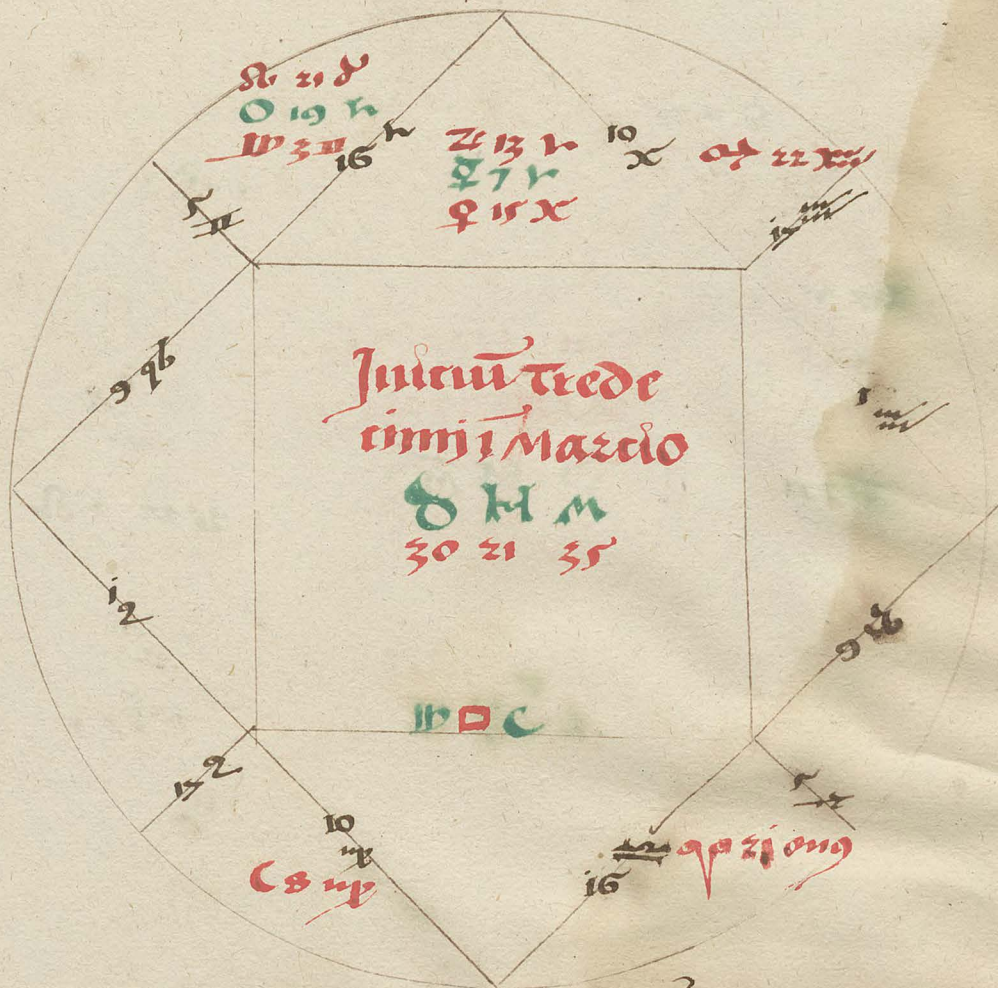 ☊ 21 ♉
☉ 19 ♈
♄ 3 ♊
16 ♈
♃ 13 ♈
☿ 7 ♈
♀ 15 ♓
10
♓
22 ♒
17 ♒
5
♊
9 ♋
1 ♒
Iniciū trede
cimi ī Marcio
D H M
30 21 35
1
♌
9 ♑
♄ □ ☾
17 ♌
10
♍
☾ 8 ♍
5
♐
16 ♎